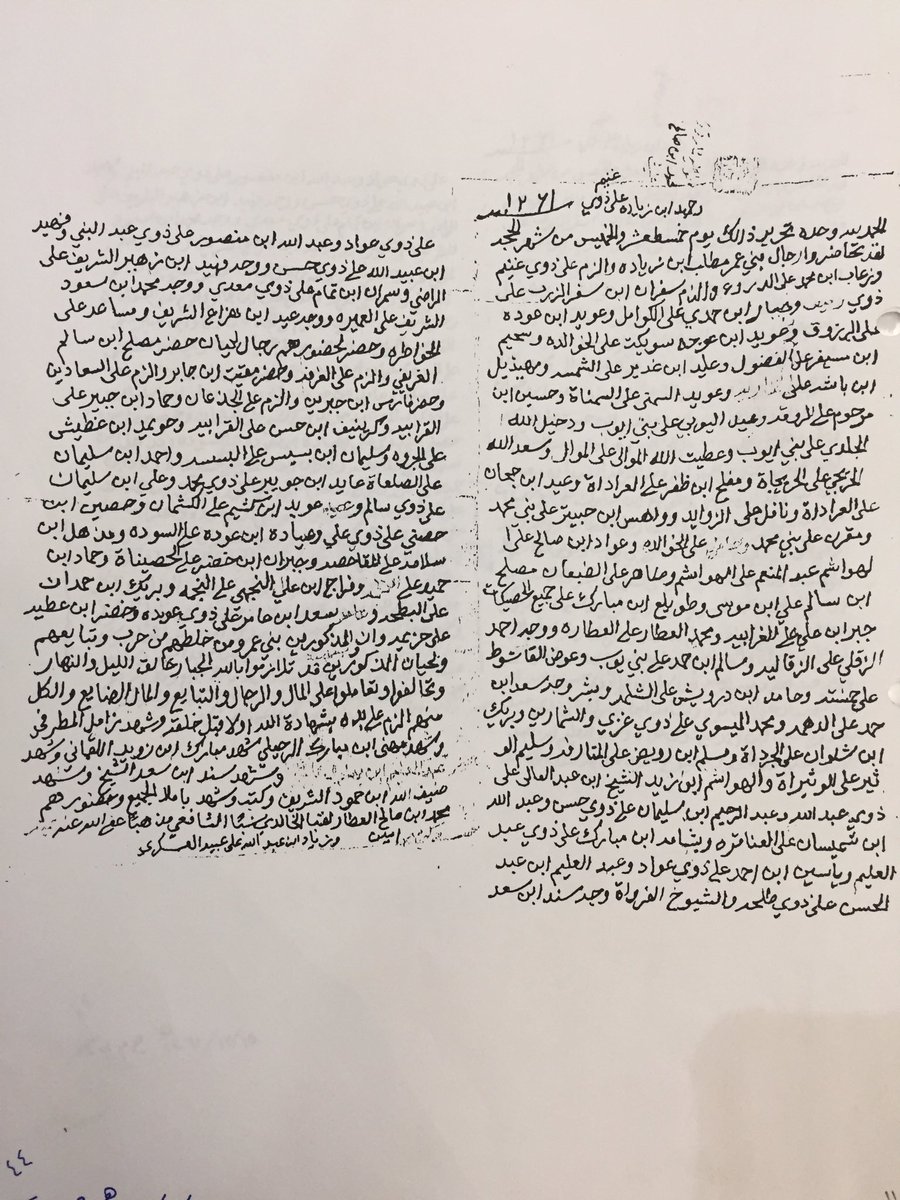 غنيم
وحمد ابن زياده على ذوي
١٢٦١ سنه
الحمد لله وحده تحرير ذالك يوم خمسطعش والخميس من شهر الحجه
لقد تحاضر وارجال بني عمر مطلب ابن زياده والزم على ذوي غنيم
وزعاب ابن محمد على الدروع والزم سفران ابن سفر الزرب على
ذوي وجبار ابن حمدي على الكوامل وعويد ابن عوده
على المرزوق وعويد ابن عوجه سويكت على الخوالده وسحيم
ابن سيفر على الفضول وعليد ابن غدير على الشمسه ومهيذيل
ابن باشر على وعويد السمني على السمناة وحسين ابن
مرحوم على الموقد وعبيد اليوبي على بني ايوب ودخيل الله
الجلدي على بني ايوب وعطيت الله الموالي على الموال وسعد الله
المريحي على المريحاة ومفلح ابن ظفر على العراداة وعيد ابن جمعان
على العراداة ونافل على الزوايد وولهس ابن حبيتر على بني محمد
ومقرن على بني محمد على الخوالده وعواد ابن صالح على
لهواشم عبد المنعم على الهواشم وطاهر على الطبعان مصلح
ابن سالم علي ابن موسى وطويلع ابن مبارك على جميع الحصيكات
جبر ابن علي على الغرابيد ومحمد العطار على العطاره ووجد احمد
الزقلي على الزقاليه وسالم ابن حمد على بني يوب وعوض القاشوط
على حمسته وحامد ابن درويش على الشلمه وبشر وجد سعد ابن
حمد على الدهمه ومحمد الميسوي على ذوي عزي والشارين وبريك
ابن شلوان على الجداة ومسلم ابن رويضي على المقارفه وسليم الو
ثير على الوثيراة والهواشم ابو زيد الشيخ ابن عبد العالي على
ذوي عبد الله وعبد الرحيم ابن سليمان على ذوي حسن وعبد الله
ابن شميسان على العناقره وبشامه ابن مبارك على ذوي عبد
العليم وياسين ابن احمد على ذوي عواد وعبد العليم ابن عبد
الحسن على ذوي طلحه والشيوخ الفرواة وجد سند ابن سعد
على ذوي عواد وعبد الله ابن منصور على ذوي عبد النبي وفهيد
ابن عبيد الله على ذوي حسن ووجد فهيد ابن زهير الشريف على
الراضي وسمران ابن تمام على ذوي معدي ووجد محمد ابن سعود
الشريف على العميره ووجد عيد ابن هزاع الشريف ومساعد على
الخواطره وحضر لحضورهم رجال لحيان حضر مصلح ابن سالم
الغريفي والزم على الغرفه وحضر معيقت ابن جابر والزم على السعادين
وحضر فارس ابن جبرين والزم على الجذعان وحماد ابن جبير على
القرابيد وكرينيف ابن حسن على القرابيد وحويمد ابن عنطيشي
على الجروه وسليمان ابن بسيس على البسسه واحمد ابن سليمان
على الصلعاة عايد ابن جويبر على ذوي محمد وعلي ابن سليمان
على ذوي سالم وعويد ابن كثيم على الكثمان وحصين ابن
حصني على ذوي علي وصيادة ابن عوده على السوده ومذهل ابن
سلامه على المقاحصه وجبران ابن خضر على الحصيناة وحماد ابن
حميد على وفراج ابن علي النجي على النجيه وبريك ابن حمدان
على البطحه وسعد ابن عامر على ذوي عوده وحضر ابن عطيه
على حزيمه وان المذكورين بني عمر ومن خلطهم من حرب وتبايعهم
ولحيان المذكورين قد تلازموا بالله الجبار خالق الليل والنهار
وتحالفوا وتعاملوا على المال والرجال والتبايع والمال الضايع والكل
منهم الزم على بشهادة الله اولا قبل خلقه وشهد نزامل المطرفي
وشهد معني ابن مبارك الرحيلي شهد مبارك ابن زويد اللقماني وشهد
وشهد سند ابن سعد الشيخ وشهد
ضيف الله ابن حمود الشريف وكتبه وشهد باملا الجميع وحضورهم
محمد ابن صالح العطار لقبا الخالدي نسبا الشافعي مذهبا عفى الله عنه
امين وزياد ابن عبد الله على عبيد العسكري
٤٤
١١